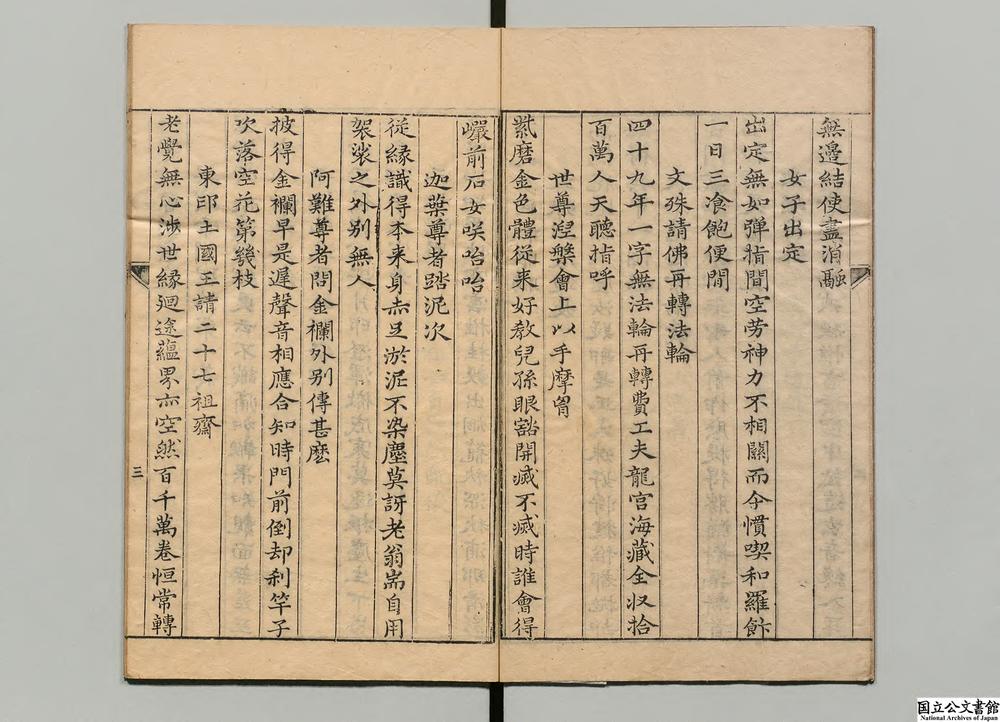 無邊結使盡消融
女子出定
出定無如弾指間空労神力不相關而今慣喫和羅飰
一日三飡飽便閒
文殊請佛再轉法輪
四十九年一字無法輪再轉費工夫龍宮海藏全収拾
百萬人天聽指呼
世尊涅槃會上以手摩胷
紫磨金色體從来好教兒孫眼豁開滅不滅時誰會得
巗前石女咲咍咍
迦葉尊者踏泥次
從縁識得本来身赤旦淤泥不染塵莫訝老翁耑自用
袈裟之外别無人
阿難尊者問金襴外别傳甚麽
披得金襴早是遲聲音相應合知時門前倒却刹竿子
吹落空花第幾枝
東印土國王請二十七祖齋
老覺無心涉世縁廻途蘊界亦空然百千萬卷恒常轉
三
国立公文書館
National Archives of Japan